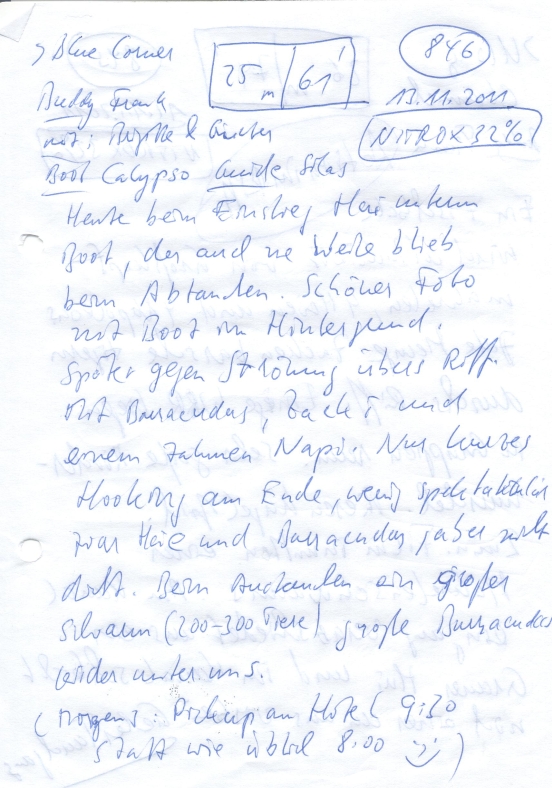 > Blue Corner
25 m / 61'
846
Buddy Frank
13.11.2011
mit: Brigitte & Günter
NITROX 32%
Boot Calypso Guide Silas
Heute beim Einstieg Hai unterm
Boot, der auch ne Weile blieb
beim Abtauchen. Schönes Foto
mit Boot im Hintergrund.
Später gegen Strömung übers Riff.
Mit Barracudas, Jacks und
einem zahmen Napi. Nur kurzes
Hooking am Ende, wenig spektakulär
zwar Haie und Barracudas, aber nicht
dicht. Beim Austauchen ein großer
Schwarm (200-300 Tiere) große Barracudas
leider unter uns.
(morgens Pickup am Hotel 9:30
statt wie üblich 8:00 :-))